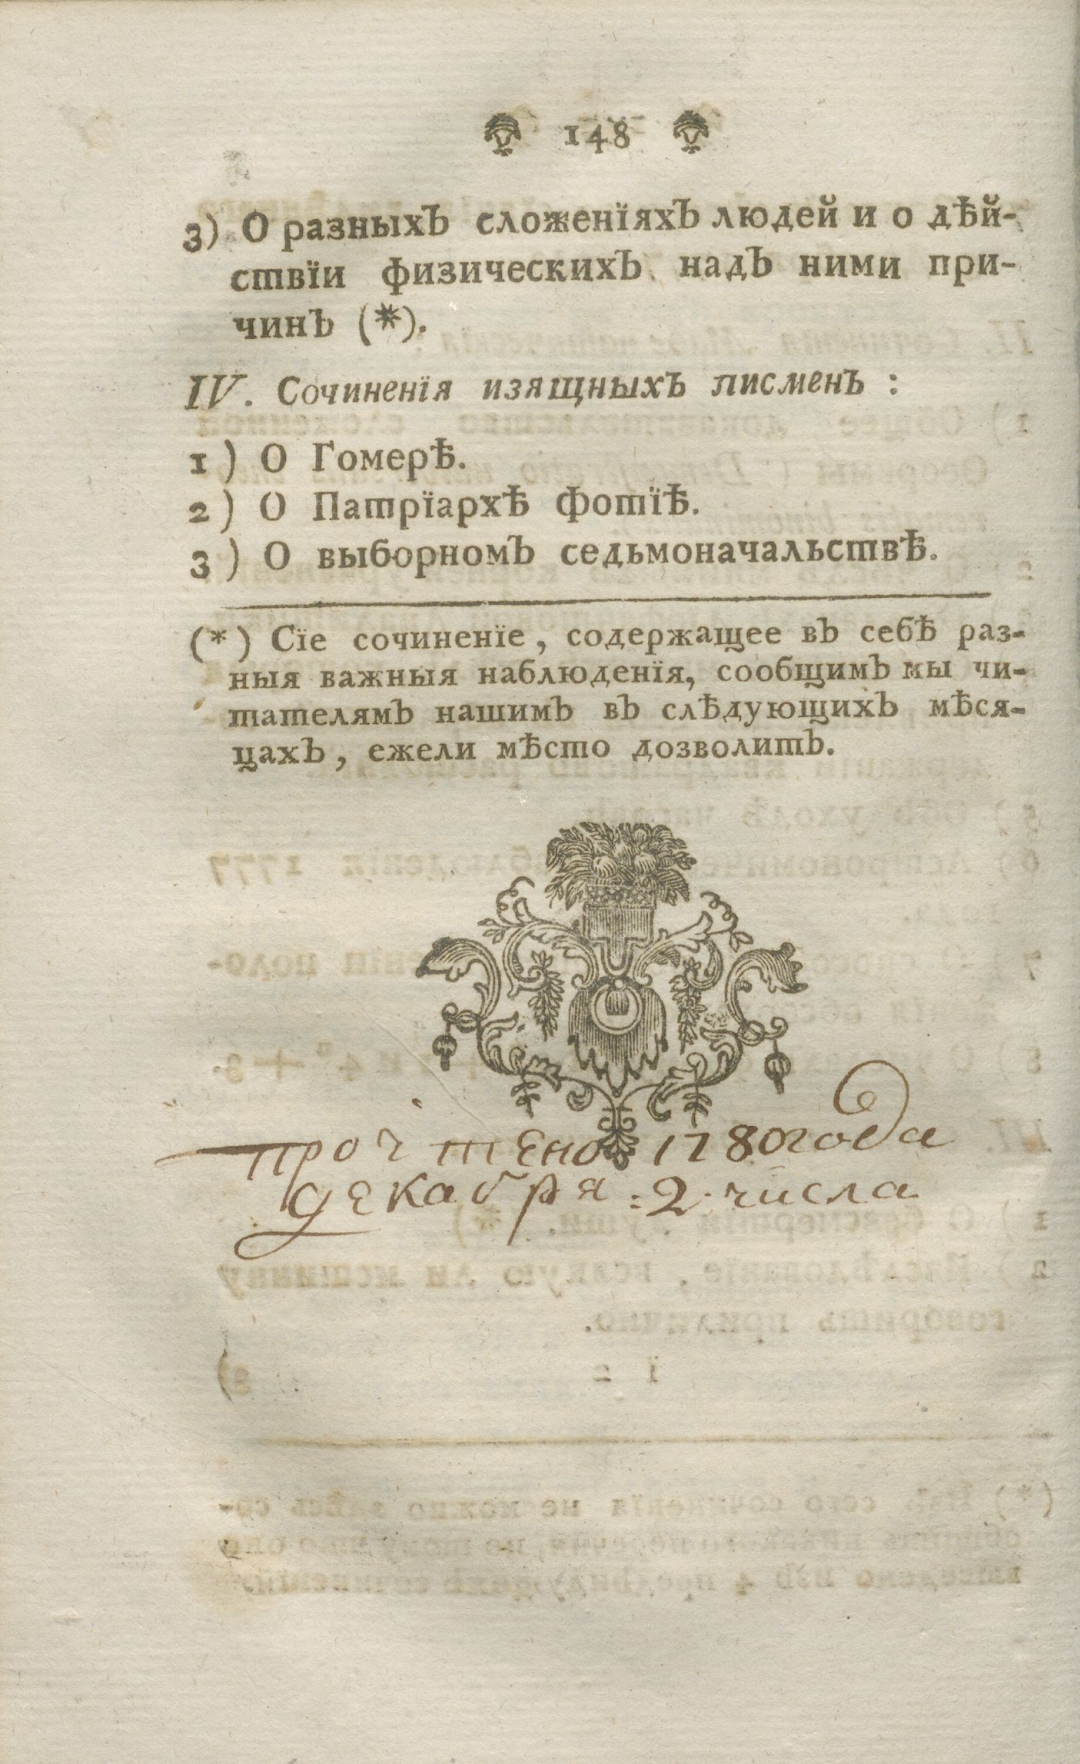 148
3) О разныхЪ сложенїяхЪ людей и о дѣй-
ствїи физическихЪ надЪ ними при-
чинЪ (*).
IV. Сочиненїя изящныхЪ писменЪ :
1) О Гомерѣ.
2) О Патрїархѣ Фотїѣ.
3) О выборномЪ седьмоначальствѣ.
(*) Сїе сочиненїе, содержащее вЪ себѣ раз-
ныя важныя наблюденїя, сообщимЪ мы чи-
тателямЪ нашимЪ вЪ слѣдующихЪ мѣся-
цахЪ, ежели мѣсто дозволитЪ.
прочтено 1780 года
декабря : 2 числа